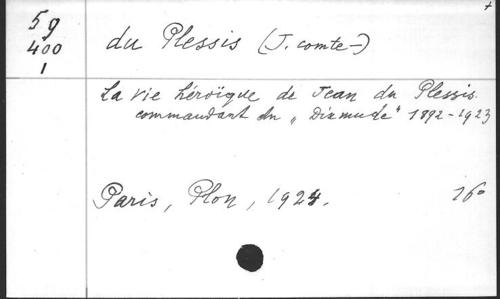 +
59
400
1
du Plessis (J. comte-)
La vie héroïque de Jean du Plessis
commandant du „Dixmude" 1892-1923
Paris, Plon, 1924.
16°